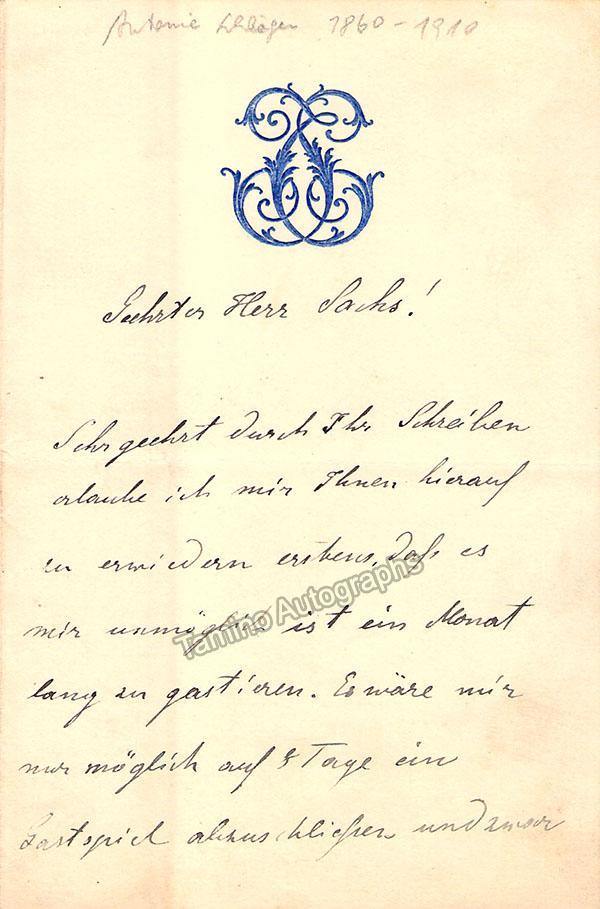 Antonie Schläger 1860-1910
Geehrter Herr Sachs!
Sehr geehrt durch Ihr Schreiben
erlaube ich mir Ihnen hierauf
zu erwiedern erstens, daß es
mir unmöglich ist ein Monat
lang zu gastieren. Es wäre mir
nur möglich auf 8 Tage ein
Gastspiel abzuschließen und zwar
Tamino Autographs